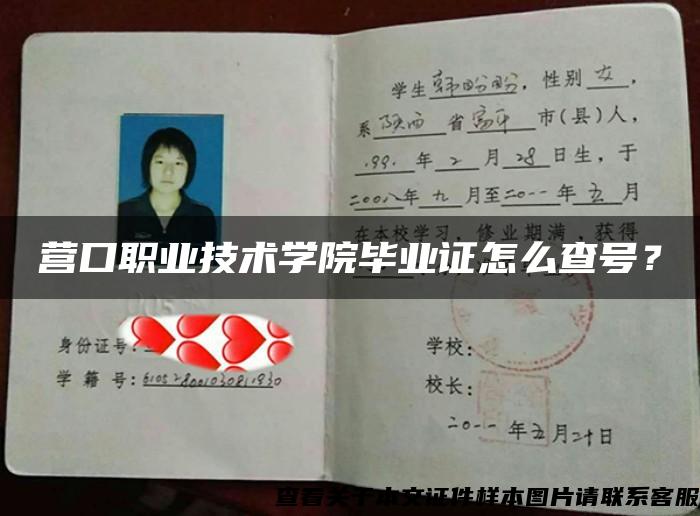 学生韩盼盼，性别女，
系陕西省富平市(县)人，
1991年2月28日生，于
二00八年九月至二0一一年五月
在本校学习，修业期满，获得
营口职业技术学院毕业证怎么查号？
身份证号：
学籍号：610528001030811930
学校：
校长：
二0一一年五月二十日
查看关于本文证件样本图片请联系客服